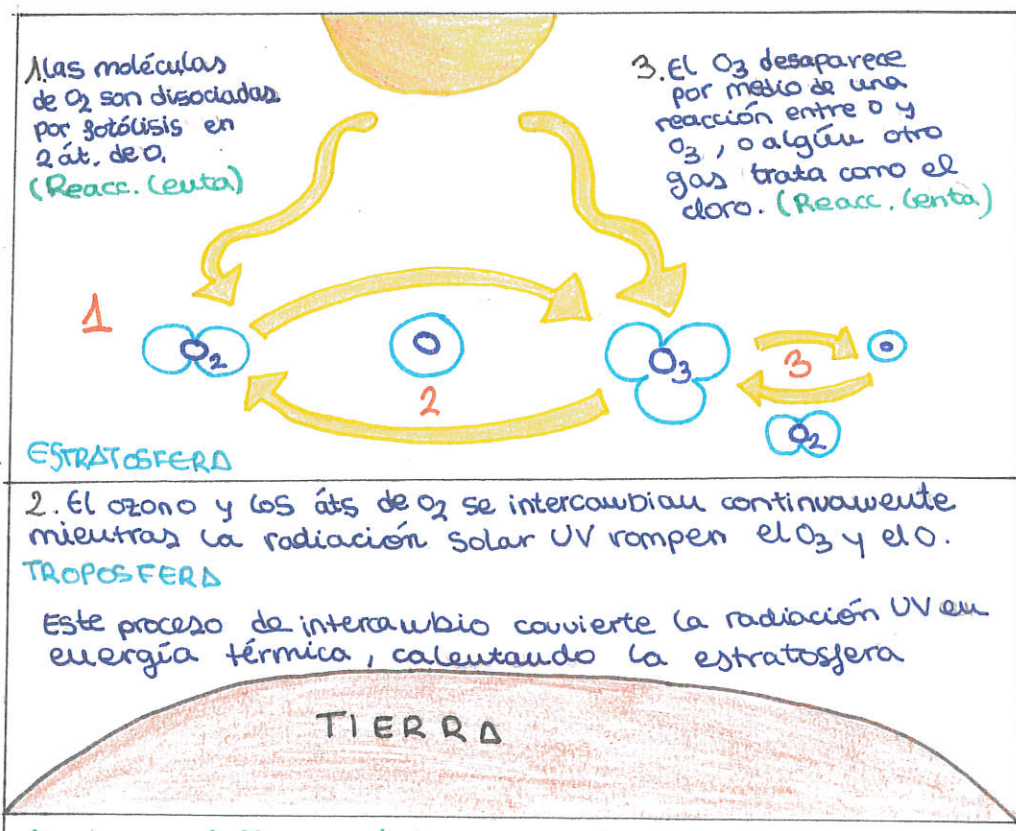 1. las moléculas
de O2 son disociadas
por fotólisis en
2 át. de O.
(Reacc. lenta)
3. El O3 desaparece
por medio de una
reacción entre O y
O3, o algún otro
gas trata como el
cloro. (Reacc. lenta)
1
O2
O
2
O3
3
O
O2
ESTRATOSFERA
2. El ozono y los áts de O2 se intercambian continuamente
mientras la radiación solar UV rompen el O3 y el O.
TROPOSFERA
Este proceso de intercambio convierte la radiación UV en
energía térmica, calentando la estratosfera
TIERRA